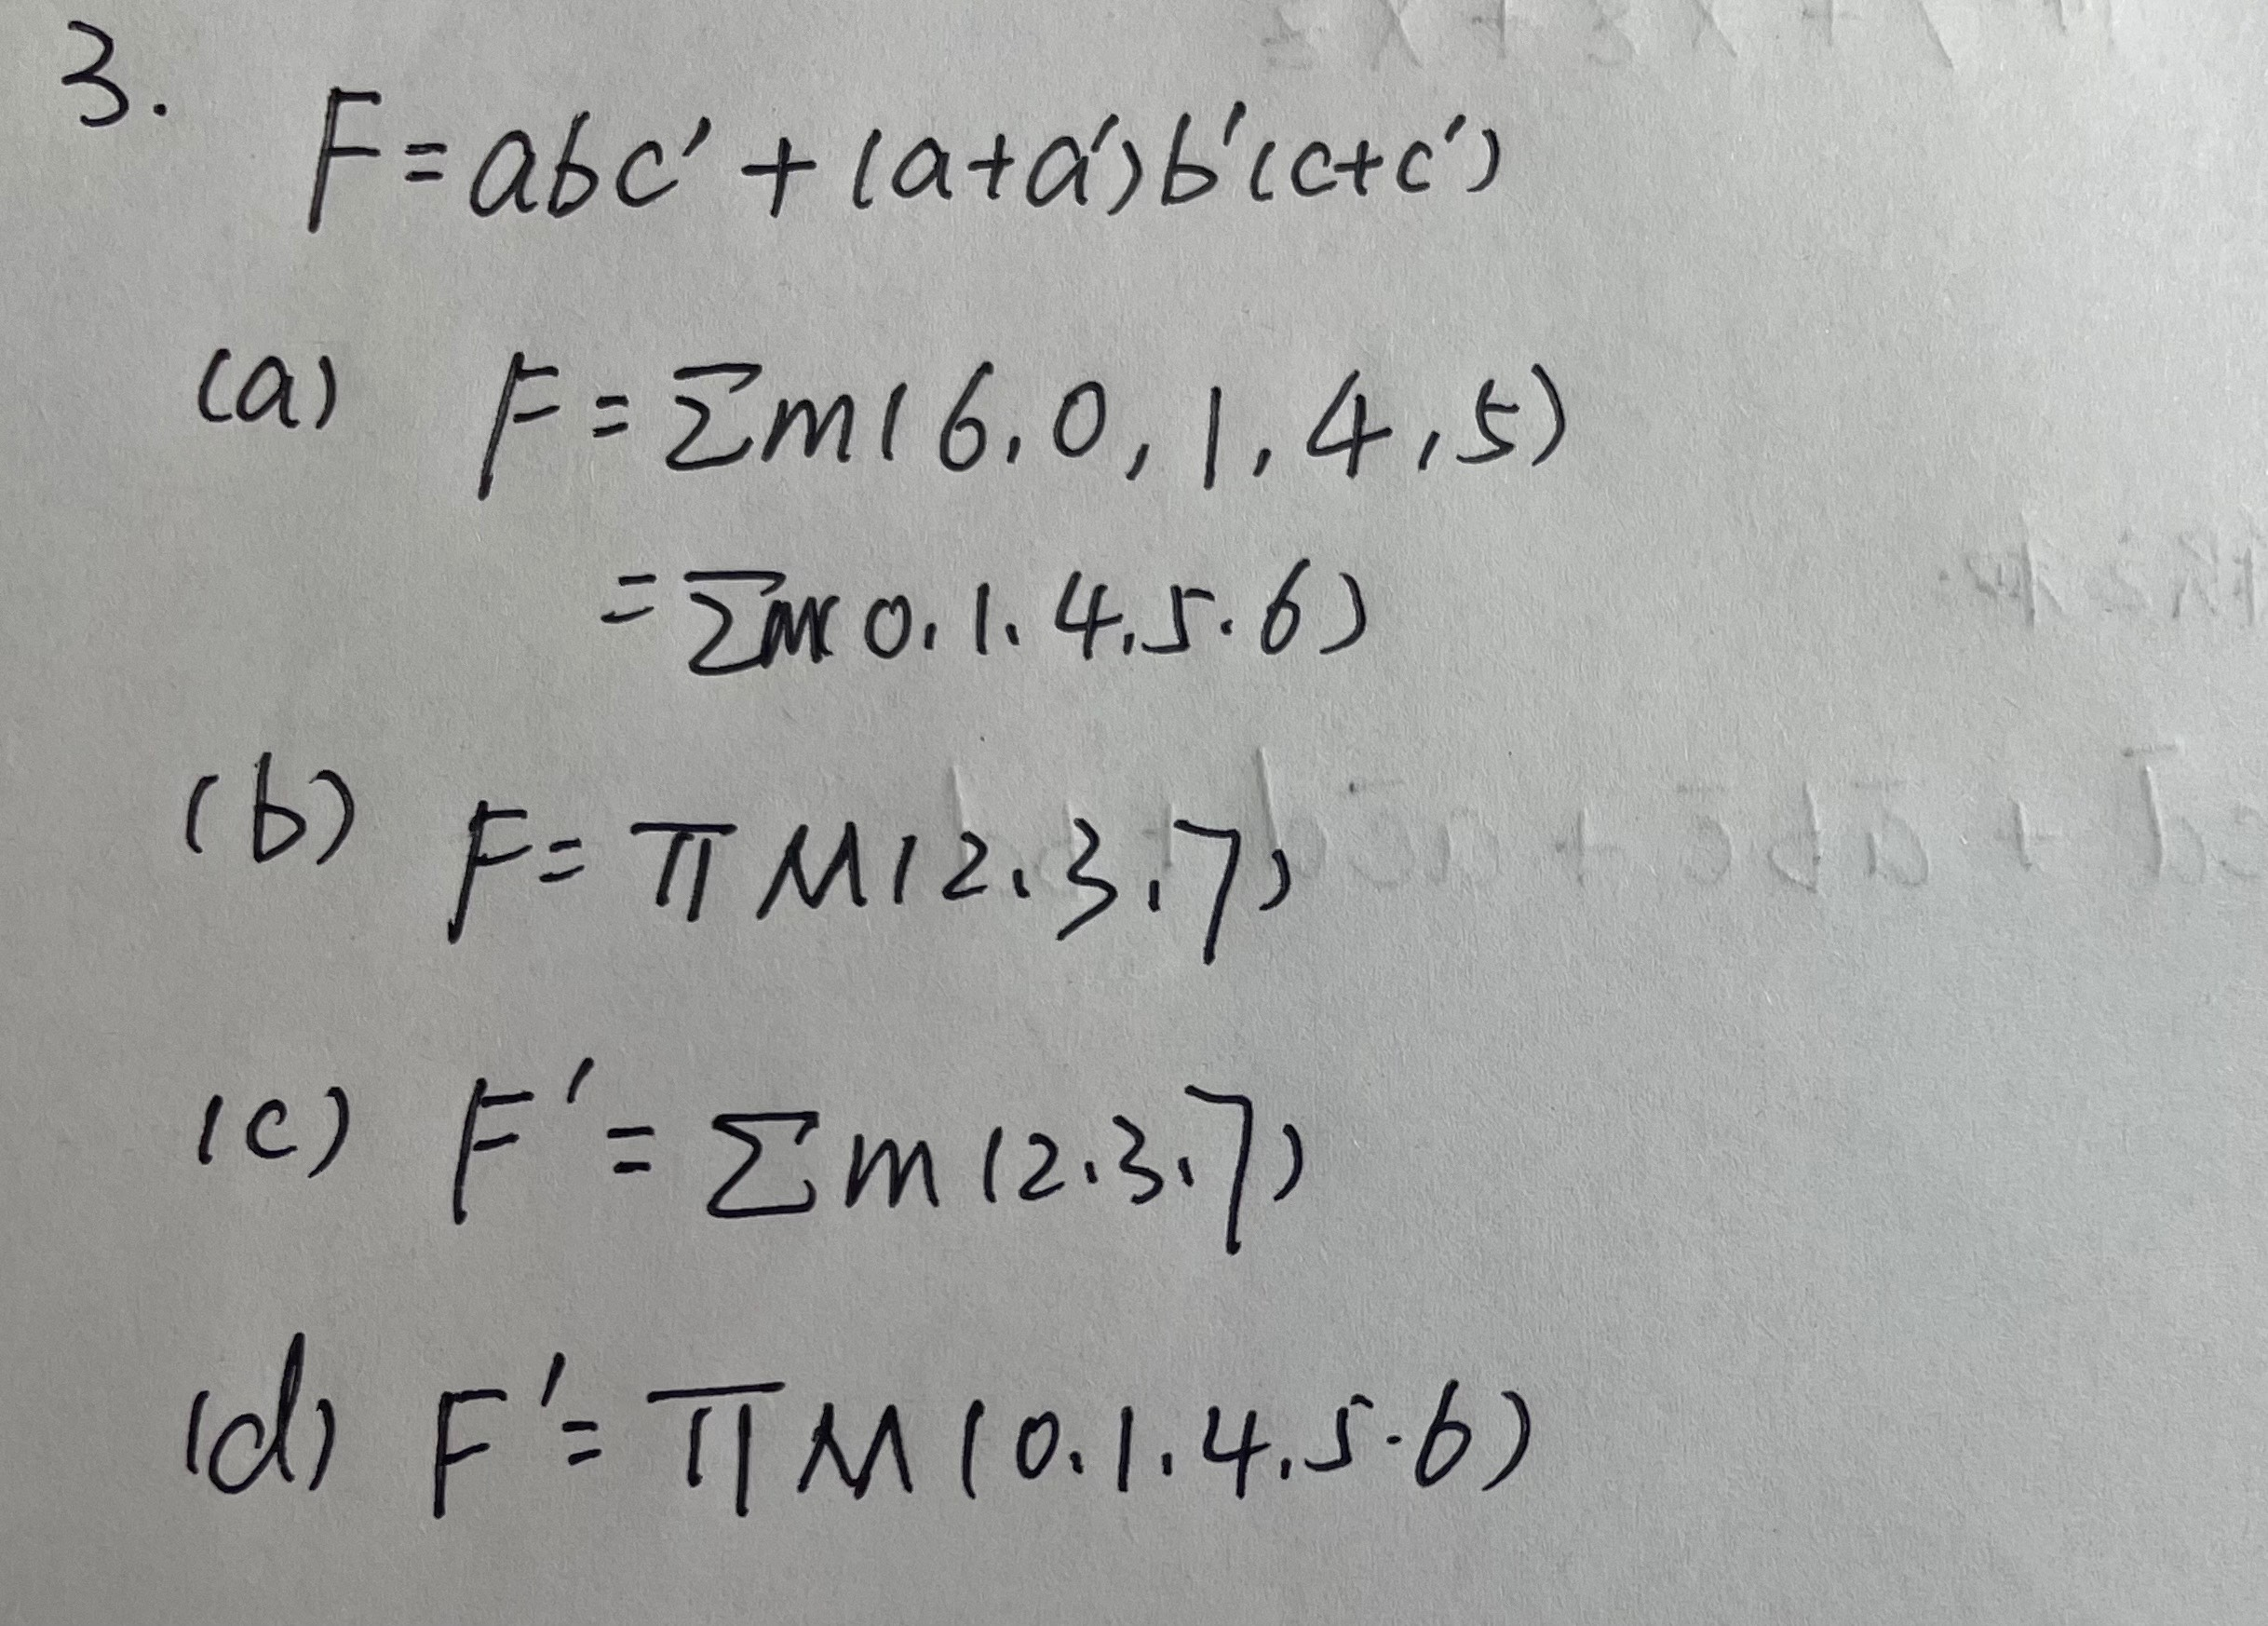 3.
F=abc'+(a+a')b'(c+c')
(a) F=Σm(6,0,1,4,5)
=Σm(0.1.4.5.6)
(b) F=πM(2.3.7)
(c) F'=Σm(2.3.7)
(d) F'=πM(0.1.4.5.6)